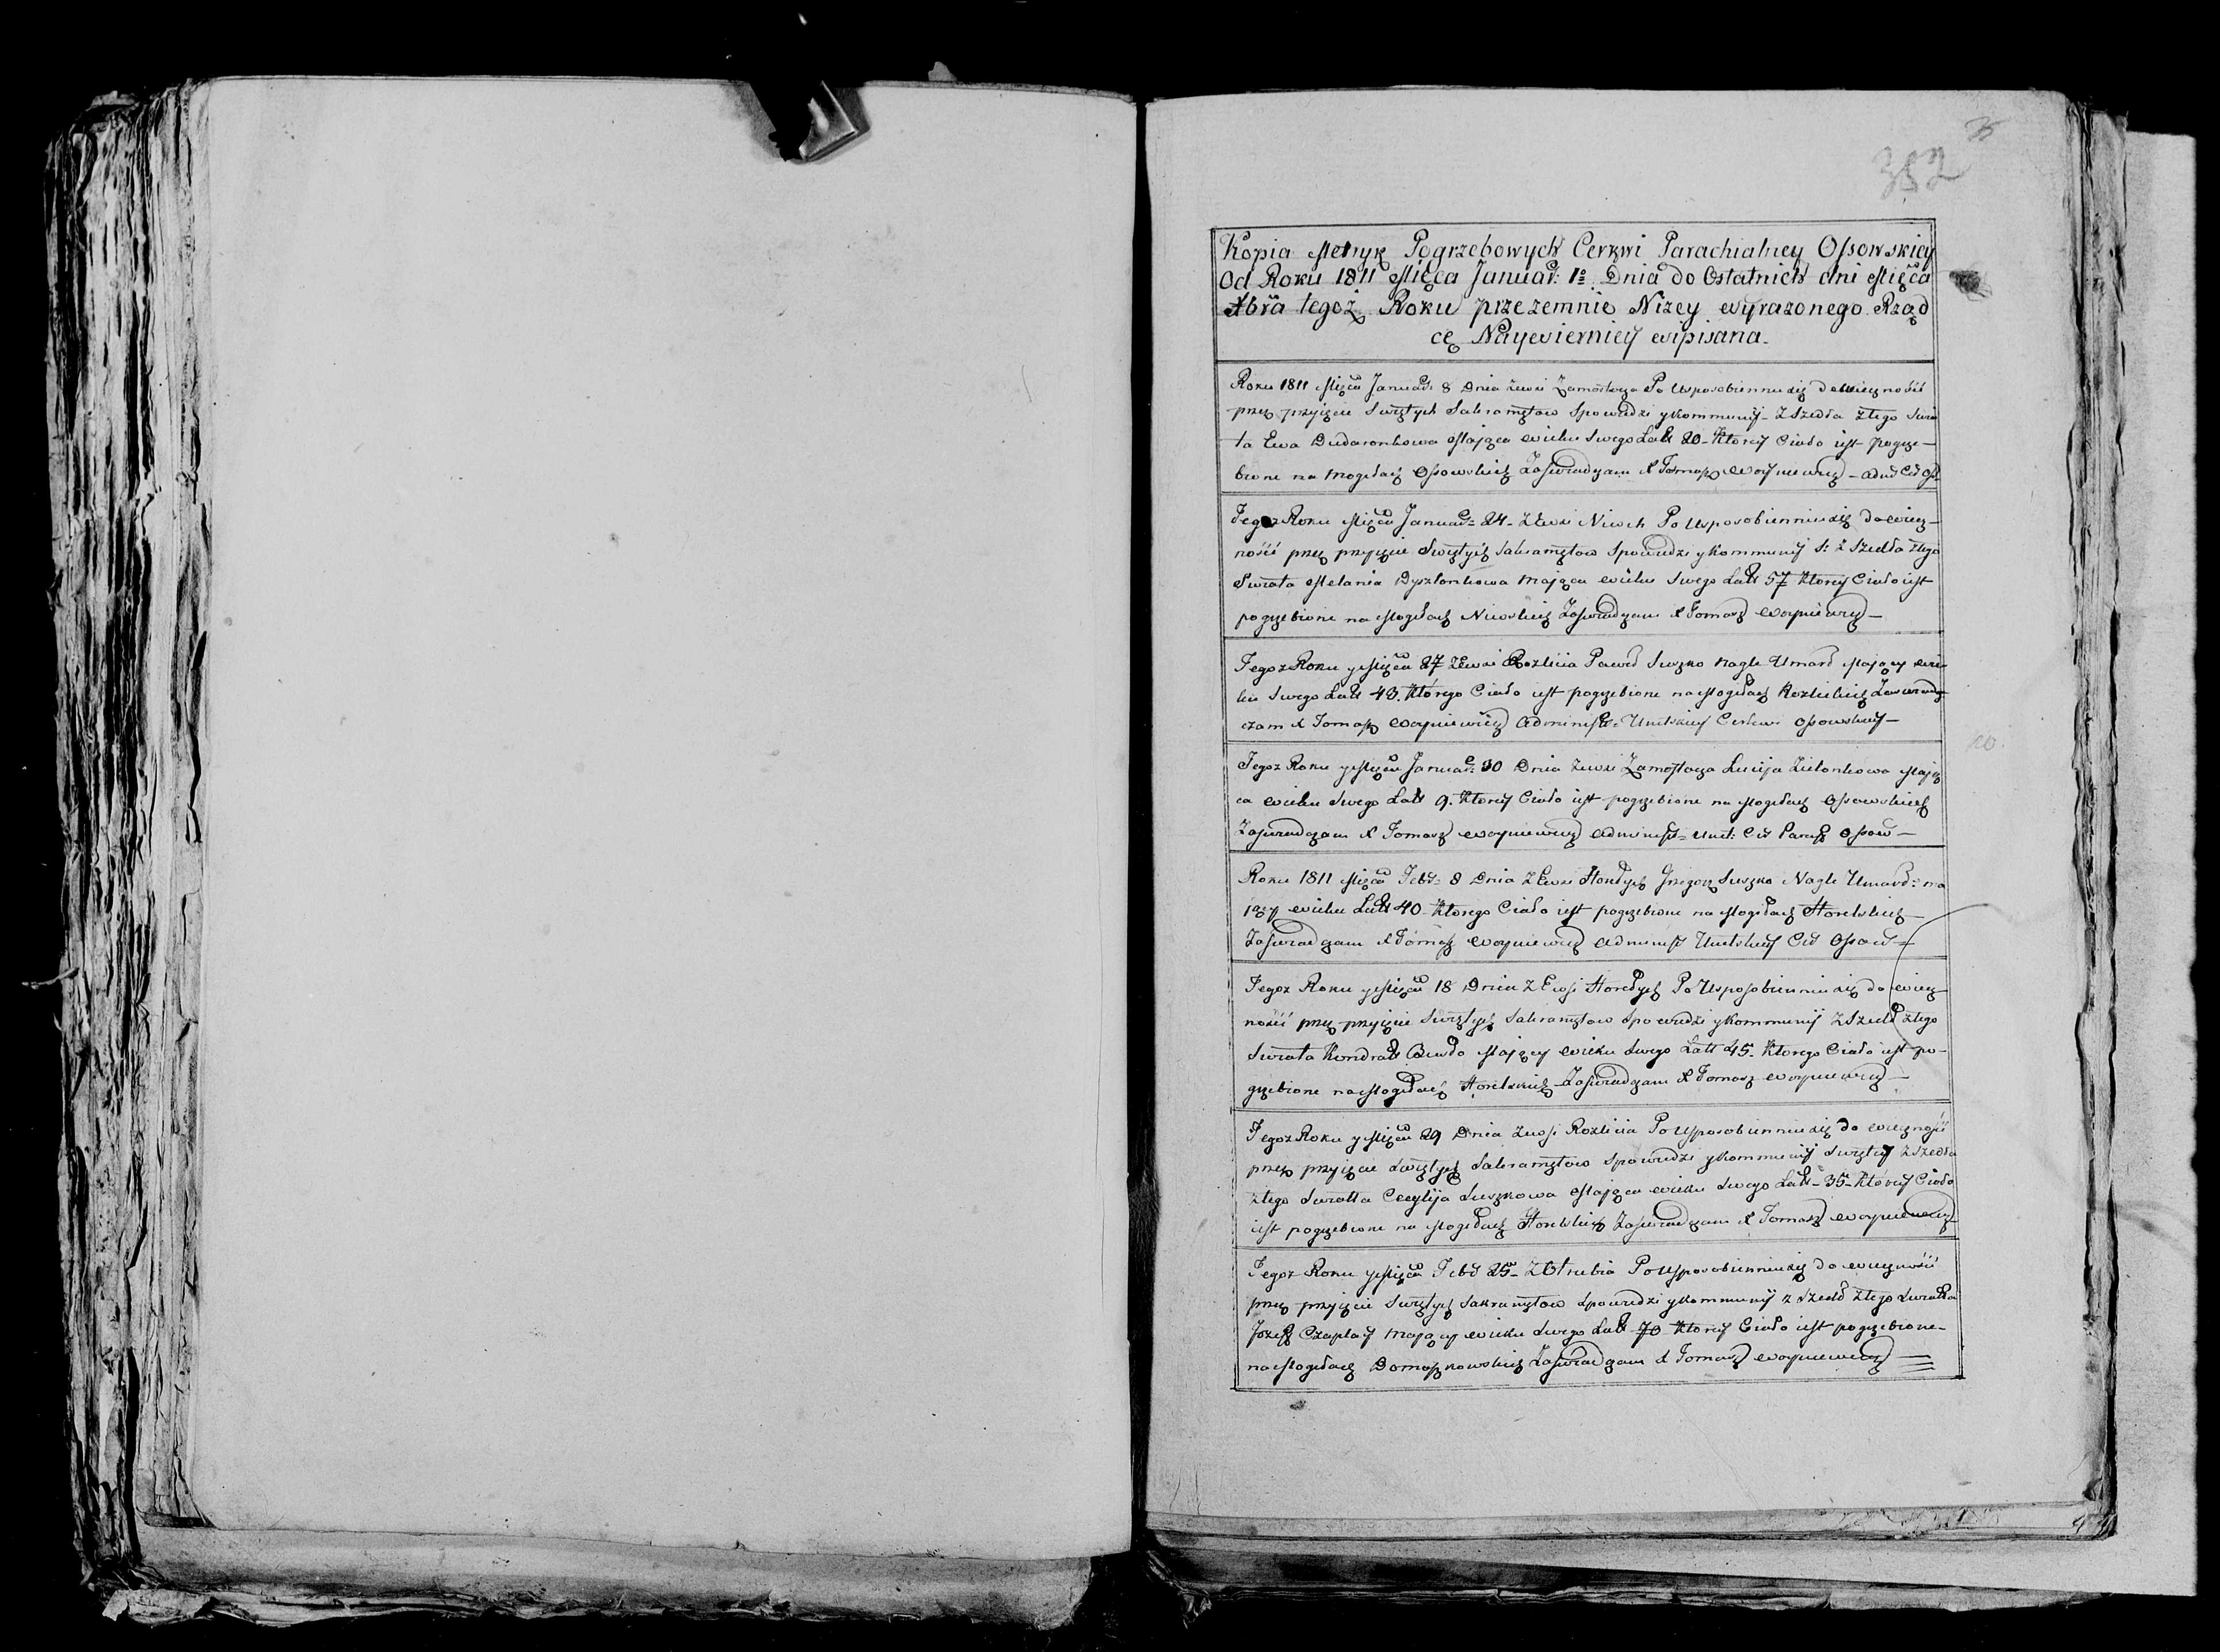 352
Kopia Metryk Pogrzebowych Cerkwi Parachialney Ossowskiey
Od Roku 1811 Mięca Januar: 1º Dnia do Ostatnich dni Mięca
Xbra tegoż Roku przezemnie Niżey wyrazonego Rząd
cę Naywierniey wpisana
Roku 1811 Mięca Januar: 8 Dnia zewsi Zamosłocza Po Usposobienniu się do wieczności
przez przyięcie Swiętych Sakramętow Spowiedzi y Kommunij Zszedła ztego Swia
ta Ewa Dudaronkowa Maiąca wieku Swego Latt 20 Ktorey Ciało iest pogrze-
bione na Mogiłach Osowskich Zaswiadczam X Tomasz Woyniewicz
Tegoz Roku Mięca Januar: 24 Zewsi Niwek Po Usposobienniu się do wiecz-
ności przez przyięcie Swiętych Sakramętow Spowiedzi y Kommunij S: Zszedła ztego
Swiata Melania Dyszlonkowa Maiąca wieku Swego Latt 57 Ktorey Ciało iest
pogrzebione na Mogiłach Niwskich Zaswiadczam X Tomasz Woyniewicz
Tegoz Roku y Mięca 27 Zewsi Kozlicia Paweł Suszko Nagle Umarł Maiący wie-
ku Swego Latt 43. Którego Ciało iest pogrzebione na Mogiłach Kozlickich Zaswiad
czam X Tomasz Woyniewicz Administr: Unitskiey Cerkwi Osowskiey
Tegoz Roku y Mięca Januar: 30 Dnia Zewsi Zamosłocza Lucija Zielonkowa Maią
ca wieku Swego Latt 9. Ktorey Ciało iest pogrzebione na Mogiłach Ossowskich
Zaswiadczam X Tomasz Woyniewicz Administr: Unit: Cer Parach Ossow
Roku 1811 Mięca Febr: 8 Dnia Zewsi Horełych Grzegorz Suszko Nagle Umarł: ma
iący wieku Latt 40 Ktorego Ciało iest pogrzebione na Mogiłach Horelskich
Zaswiadczam X Tomasz Woyniewicz Administr Unitskiey Cer Ossow
Tegoz Roku y Mięca 18 Dnia Zewsi Horełych Po Usposobienniu się do wiecz-
ności przez przyięcie Swiętych Sakramętow Spowiedzi y Kommunij Zszedł ztego
Swiata Kondratt Maiący wieku Swego Latt 45 Ktorego Ciało iest po-
grzebione na Mogiłach Horelskich Zaswiadczam X Tomasz Woyniewicz
Tegoz Roku y Mięca 29 Dnia Zewsi Kozlicia Po Usposobienniu się do wieczności
przez przyięcie Swiętych Sakramętow Spowiedzi y Kommunij Swiętey Zszedła
ztego Swiatta Cecylija Suszkowa Maiąca wieku Swego Latt 35 Którey Ciało
iest pogrzebione na Mogiłach Horelskich Zaswiadczam X Tomasz Woyniewicz
Tegoz Roku y Mięca Febr 25 Po Usposobienniu się do wieczności
przez przyięcie Swiętych Sakramętow Spowiedzi y Kommunij Zszedł ztego Swiatta
Jozeff Czaplay Maiący wieku Swego Latt 70 Ktorey Ciało iest pogrzebione
na Mogiłach Domasznowskich Zaswiadczam X Tomasz Woyniewicz